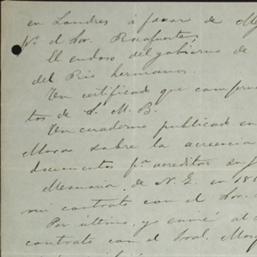 en Londres á favor de
Pº. el Sor. Rocafuerte,
Un endoso del gobierno de
del Rio hermanos.
Un certificado que
tos de S. M. B.
Un cuaderno publicado en
Moras sobre la acreencia
documentos pª acreditar
Memoria de N. E. en 18
mi contrato con el Sor.
Por último, yo envié al
contrato con el Gral.